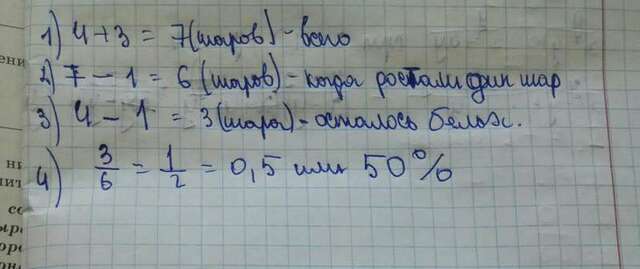 1) 4 + 3 = 7 (шаров) - всего
2) 7 - 1 = 6 (шаров) - когда достали один шар
3) 4 - 1 = 3 (шара) - осталось белых.
4) 3/6 = 1/2 = 0,5 или 50%